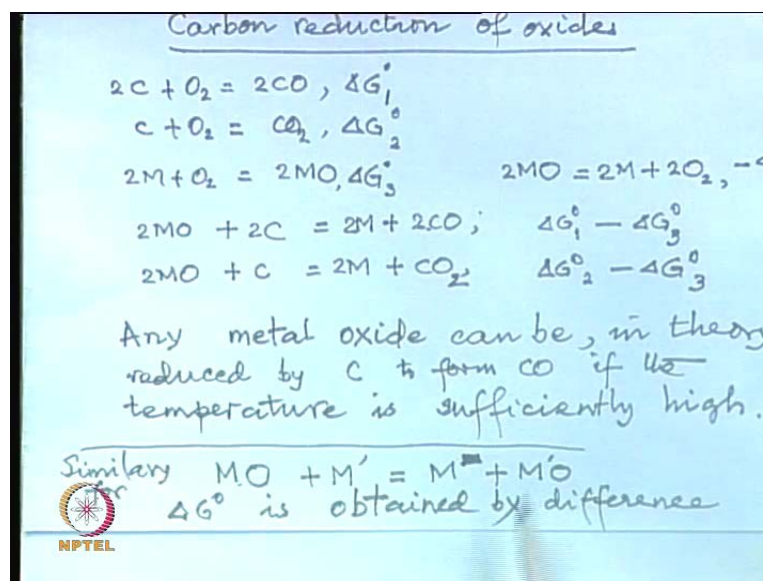 Carbon reduction of oxides
2C + O₂ = 2CO, ΔG₁°
C + O₂ = CO₂, ΔG₂°
2M + O₂ = 2MO, ΔG₃° 2MO = 2M + 2O₂, -Δ
2MO + 2C = 2M + 2CO; ΔG₁° - ΔG₃°
2MO + C = 2M + CO₂, ΔG₂° - ΔG₃°
Any metal oxide can be, in theory
reduced by C to form CO if the
temperature is sufficiently high.
Similary MO + M' = M + M'O
for ΔG° is obtained by difference
NPTEL